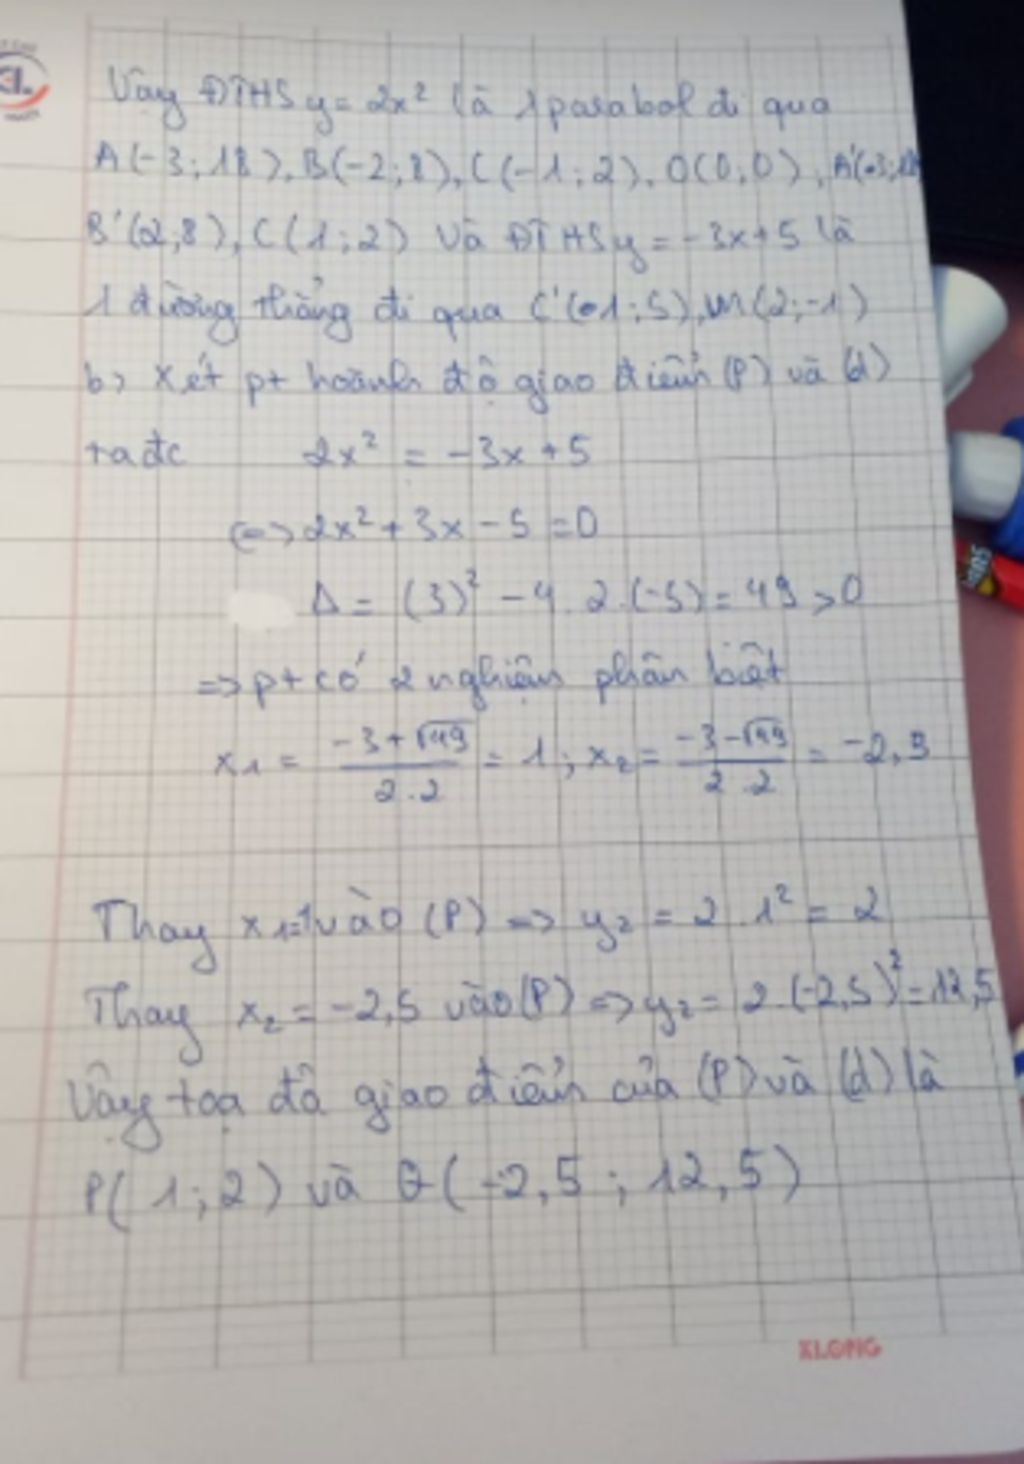 Vậy ĐTHS y = 2x² là 1 parabol đi qua
A(-3;18), B(-2;8), C(-1;2), O(0;0), A'(-3;18)
B'(2;8), C(1;2) và ĐTHS y = -3x+5 là
1 đường thẳng đi qua C'(01;5), M(2;-1)
b, Xét pt hoành độ giao điểm (P) và (d)
ta đc 2x² = -3x + 5
<=> 2x² + 3x - 5 = 0
Δ = (3)² - 4.2.(-5) = 49 > 0
=> pt có 2 nghiệm phân biệt
x₁ = (-3+√49)/(2.2) = 1; x₂ = (-3-√49)/(2.2) = -2,5
Thay x₁=1 vào (P) => y₂ = 2.1² = 2
Thay x₂ = -2,5 vào (P) => y₂ = 2.(-2,5)² = 12,5
Vậy toạ độ giao điểm của (P) và (d) là
P(1;2) và Q(-2,5;12,5)
KLONG